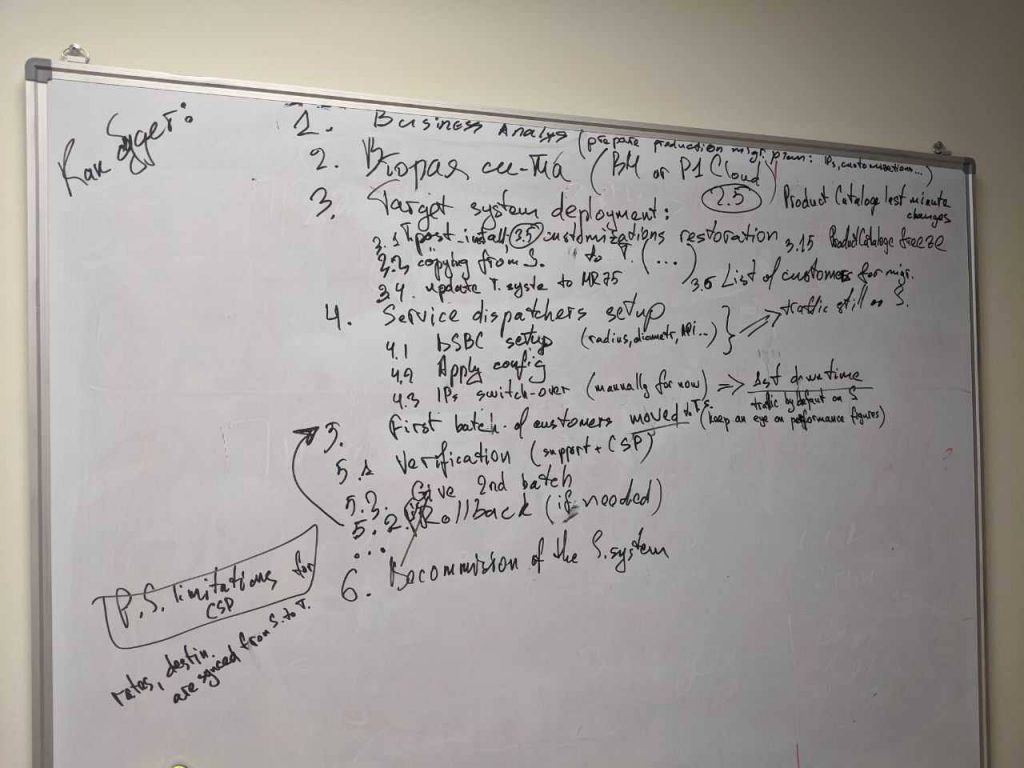 Как будет:
1. Business Analys (prepare production migr. plan: IPs, customizations...)
2. Вторая си-ма (BM or P1 Cloud)
2.5 Product Cataloge last minute changes
3. Target system deployment:
3.1 post-install, 3.5 customizations restoration
3.15 Product Cataloge freeze
copying from S. to T. (...)
3.6 List of customers for migr.
3.4. update T. syste to MR75
4. Service dispatchers setup
4.1 DSBC setup (radius, diametr, API...)
} => traffic still on S.
4.2 Apply config
4.3 IPs switch-over (manually for now) => 1st downtime
traffic by default on S
First batch of customers moved to T.S. (keep an eye on performance figures)
5.1 Verification (support + CSP)
5.3. Give 2nd batch
5.2 Rollback (if needed)
...
6. Decommision of the S. system
P.S. limitations for CSP
rates, destin.
are synced from S. to T.